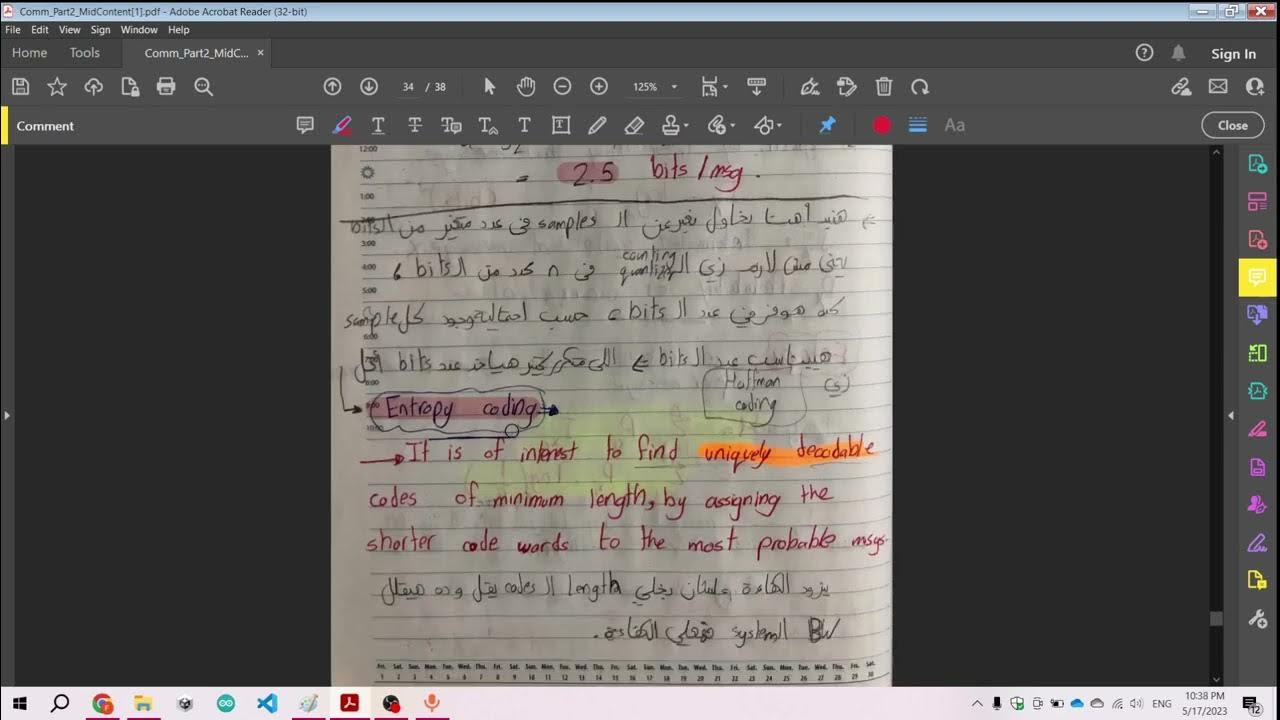 Comm_Part2_MidContent[1].pdf - Adobe Acrobat Reader (32-bit)
File Edit View Sign Window Help
Home Tools Comm_Part2_MidC... × Sign In
34 / 38 125%
Comment Aa Close
12:00
= 2.5 bits/msg.
1:00
samples في عدد من الـ bits
3:00
counting
4:00 يعني مش لازم زي الـ في n عدد من الـ bits
5:00
كده هوفر في عدد الـ bits حسب احتمالية وجود كل sample
6:00
عدد الـ bits اللي متكرر كتير هياخد عدد bits أقل
8:00
زي Huffman coding
Entropy coding
10:00
It is of interest to find uniquely decodable
codes of minimum length, by assigning the
shorter code words to the most probable msgs.
يزود الكفاءة علشان بخلي length الـ codes يقل وده هيقلل
BW الـ system
Fri. Sat. Sun. Mon. Tue. Wed. Thu. Fri. Sat. Sun. Mon. Tue. Wed. Thu. Fri. Sat. Sun. Mon. Tue. Wed. Thu. Fri. Sat. Sun. Mon. Tue. Wed. Thu. Fri. Sat.
1 2 3 4 5 6 7 8 9 10 11 12 13 14 15 16 17 18 19 20 21 22 23 24 25 26 27 28 29 30
ENG 10:38 PM
5/17/2023 12